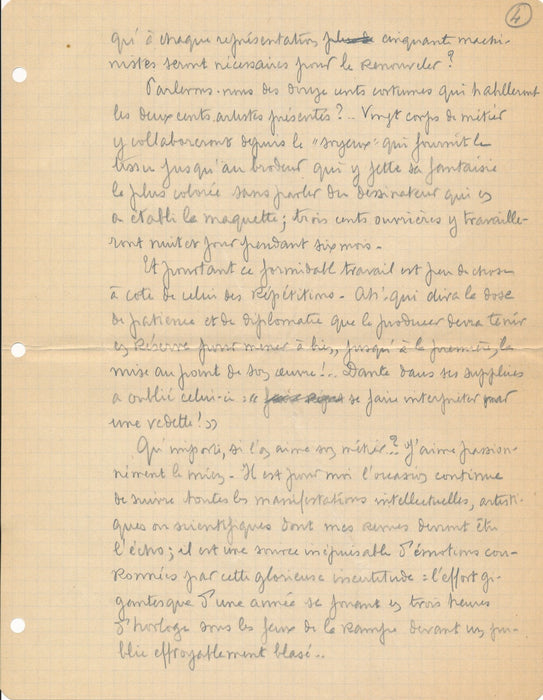 4
qu'à chaque représentation cinquante machi-
nistes seront nécessaires pour le renouveler?
Parlerons-nous des douze cents costumes qui habilleront
les deux cents artistes présentés?.. Vingt corps de métier
y collaboreront depuis le "soyeux" qui fournit le
tissu jusqu'au brodeur qui y jette sa fantaisie
la plus colorée sans parler du dessinateur qui en
a établi la maquette; trois cents ouvrières y travaille-
ront nuit et jour pendant six mois.
Et pourtant ce formidable travail est peu de chose
à côté de celui des Répétitions. Ah! qui dira la dose
de patience et de diplomatie que le producer devra tenir
en Réserve pour mener à bien, jusqu'à la première, la
mise au point de son œuvre!.. Dante dans ses supplices
a oublié celui-ci: « se faire interpréter par
une vedette! »
Qu'importe, si l'on aime son métier? J'aime passion-
nément le mien. Il est pour moi l'occasion continue
de suivre toutes les manifestations intellectuelles, artisti-
ques ou scientifiques dont mes revues devront être
l'écho; il est une source inépuisable d'émotions cou-
ronnées par cette glorieuse incertitude: l'effort gi-
gantesque d'une année se jouant en trois heures
d'horloge sous les feux de la Rampe devant un pu-
blic effroyablement blasé..